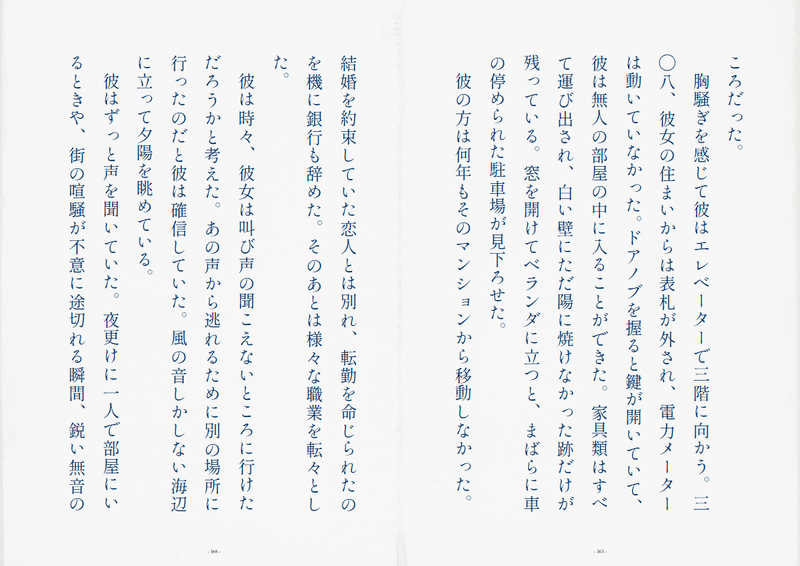 ころだった。
　胸騒ぎを感じて彼はエレベーターで三階に向かう。三
〇八、彼女の住まいからは表札が外され、電力メーター
は動いていなかった。ドアノブを握ると鍵が開いていて、
彼は無人の部屋の中に入ることができた。家具類はすべ
て運び出され、白い壁にただ陽に焼けなかった跡だけが
残っている。窓を開けてベランダに立つと、まばらに車
の停められた駐車場が見下ろせた。
　彼の方は何年もそのマンションから移動しなかった。
- 165 -
結婚を約束していた恋人とは別れ、転勤を命じられたの
を機に銀行も辞めた。そのあとは様々な職業を転々とし
た。
　彼は時々、彼女は叫び声の聞こえないところに行けた
だろうかと考えた。あの声から逃れるために別の場所に
行ったのだと彼は確信していた。風の音しかしない海辺
に立って夕陽を眺めている。
　彼はずっと声を聞いていた。夜更けに一人で部屋にい
るときや、街の喧騒が不意に途切れる瞬間、鋭い無音の
- 166 -